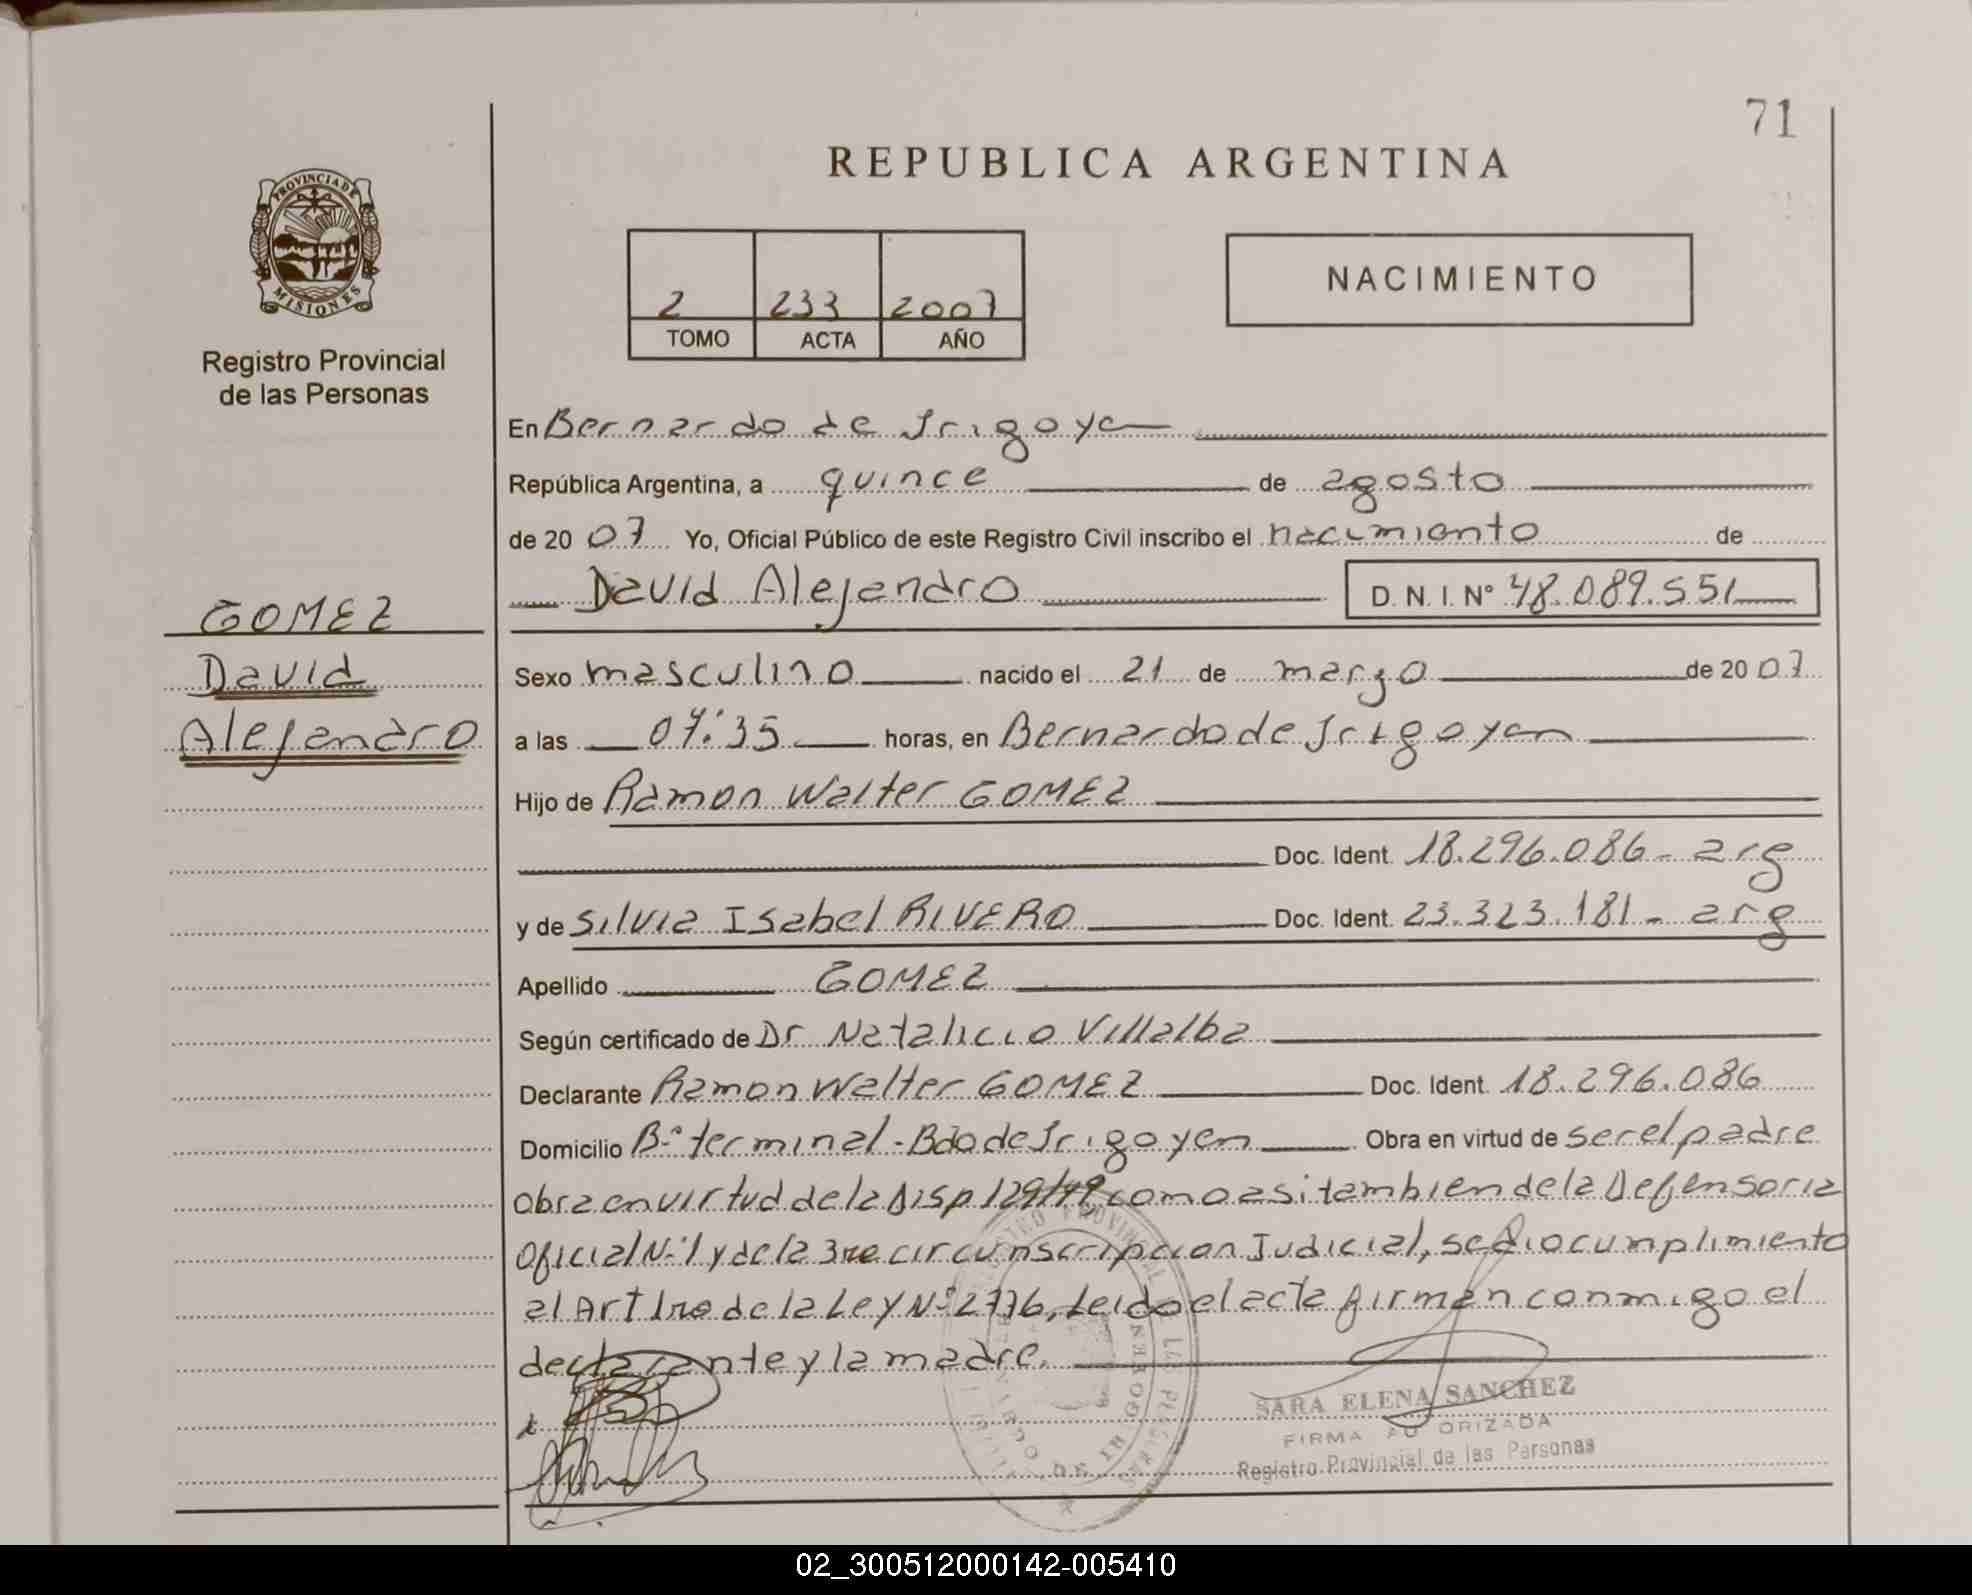 71
REPUBLICA ARGENTINA
PROVINCIA DE
MISIONES
Registro Provincial
de las Personas
2 233 2007
TOMO ACTA AÑO
NACIMIENTO
En Bernardo de Irigoyen
República Argentina, a quince de agosto
de 20 07 Yo, Oficial Público de este Registro Civil inscribo el nacimiento de
David Alejandro D.N.I. Nº 48.089.551
GOMEZ
David
Alejandro
Sexo masculino nacido el 21 de marzo de 20 07
a las 04:35 horas, en Bernardo de Irigoyen
Hijo de Ramon Walter GOMEZ
Doc. Ident. 18.296.086 - arg
y de Silvia Isabel RIVERO Doc. Ident. 23.323.181 - arg
Apellido GOMEZ
Según certificado de Dr Natalicio Villalba
Declarante Ramon Walter GOMEZ Doc. Ident. 18.296.086
Domicilio Bº terminal - Bdo de Irigoyen Obra en virtud de ser el padre
obra en virtud de la Disp 129/99 como asi tambien de la Defensoria
Oficial Nº 1 y de la 3ra circunscripcion Judicial, se dio cumplimiento
al Art 1ro de la Ley Nº 2776, Leido el acta firman conmigo el
declarante y la madre.
SARA ELENA SANCHEZ
FIRMA AUTORIZADA
Registro Provincial de las Personas
02_300512000142-005410